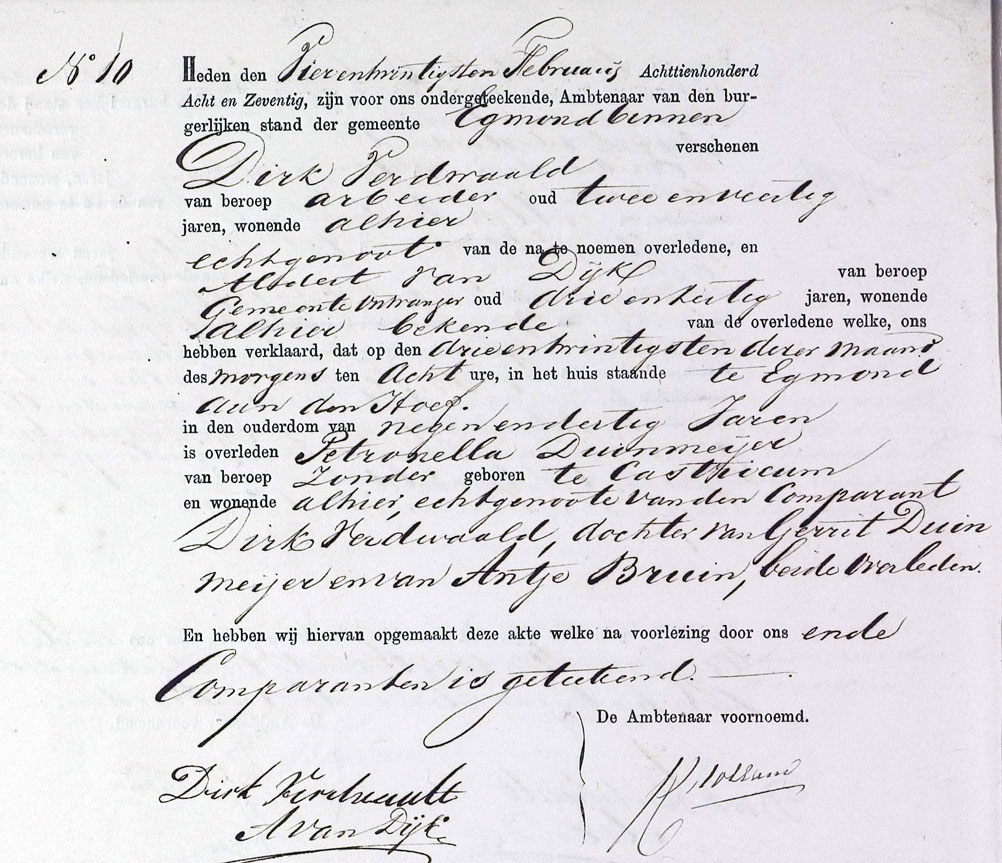 No 10
Heden den Vierentwintigsten Februarij Achttienhonderd
Acht en Zeventig, zijn voor ons ondergeteekende, Ambtenaar van den bur-
gerlijken stand der gemeente Egmondbinnen
verschenen
Dirk Verdwaald
van beroep arbeider oud twee en veertig
jaren, wonende alhier
echtgenoot van de na te noemen overledene, en
Modest Van Dijk van beroep
Gemeente ontvanger oud drie en dertig jaren, wonende
alhier bekende van de overledene welke, ons
hebben verklaard, dat op den drieentwintigsten dezer maand
des morgens ten Acht ure, in het huis staande te Egmond
aan den Hoef.
in den ouderdom van negen en dertig Jaren
is overleden Petronella Duinmeijer
van beroep Zonder geboren te Castricum
en wonende alhier, echtgenoote van den Comparant
Dirk Verdwaald, dochter van Gerrit Duin
meijer en van Antje Bruin, beide overleden.
En hebben wij hiervan opgemaakt deze akte welke na voorlezing door ons en de
Comparanten is geteekend.
De Ambtenaar voornoemd.
Dirk Verdwaald
A van Dijk